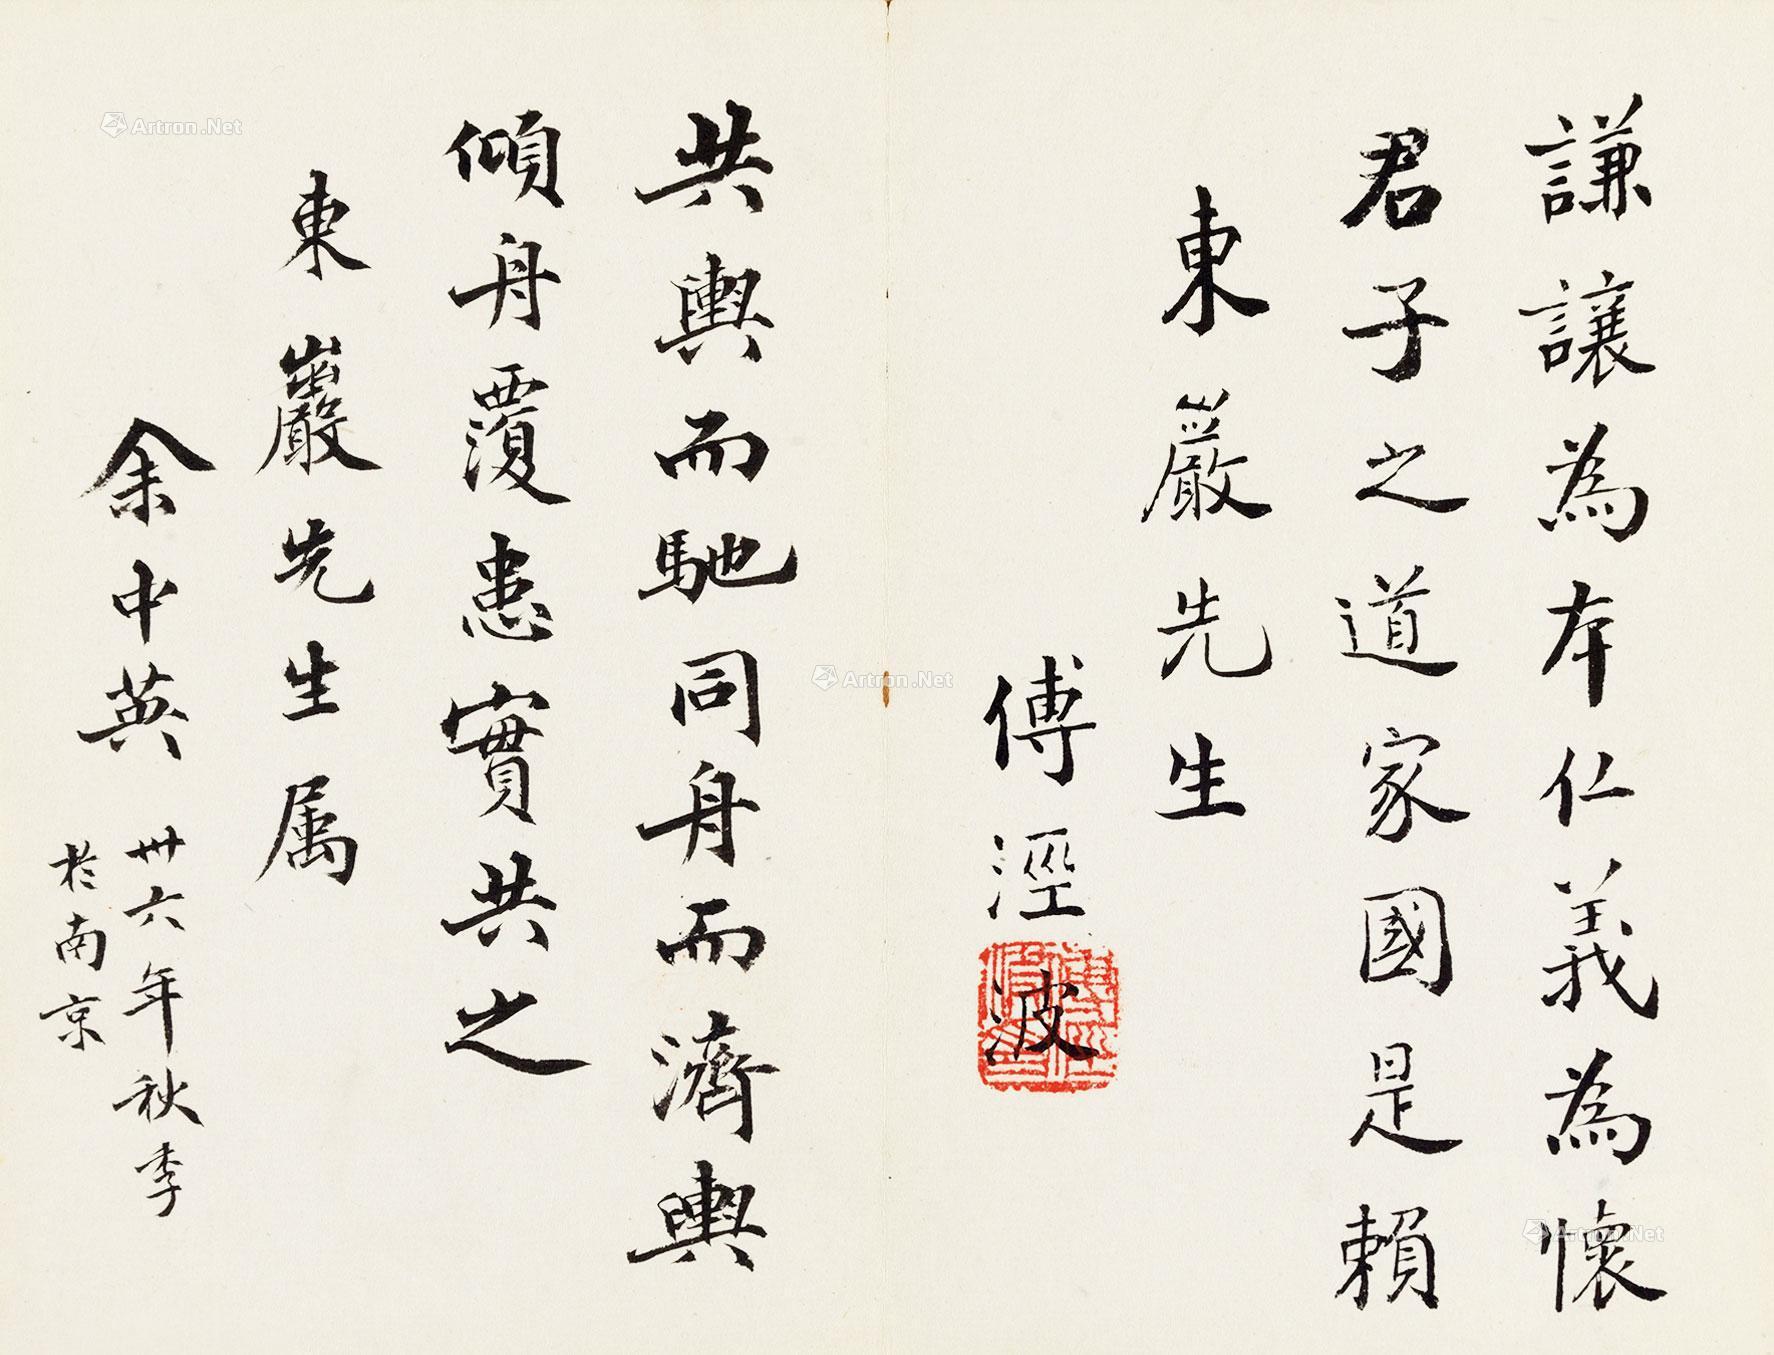 謙讓為本仁義為懷
君子之道家國是賴
東巖先生
傅涇波
共輿而馳同舟而濟輿
傾舟覆患實共之
東巖先生属
余中英
卅六年秋季
於南京
Artron.Net
Artron.Net
Artron.Net